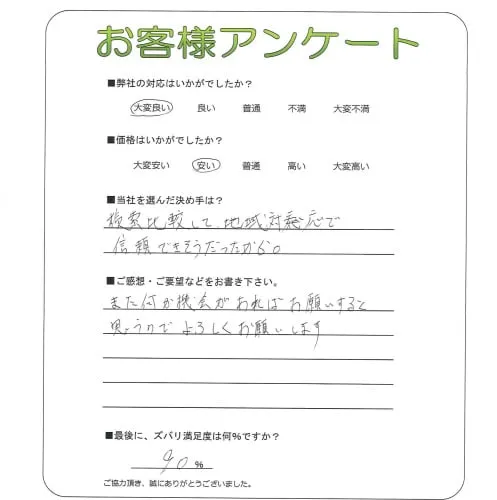 お客様アンケート
■弊社の対応はいかがでしたか?
大変良い 良い 普通 不満 大変不満
■価格はいかがでしたか?
大変安い 安い 普通 高い 大変高い
■当社を選んだ決め手は?
検索比較して、地域対応で
信頼できそうだったから。
■ご感想・ご要望などをお書き下さい。
また何か機会があればお願いすると
思うのでよろしくお願いします
■最後に、ズバリ満足度は何%ですか?
90 %
ご協力頂き、誠にありがとうございました。